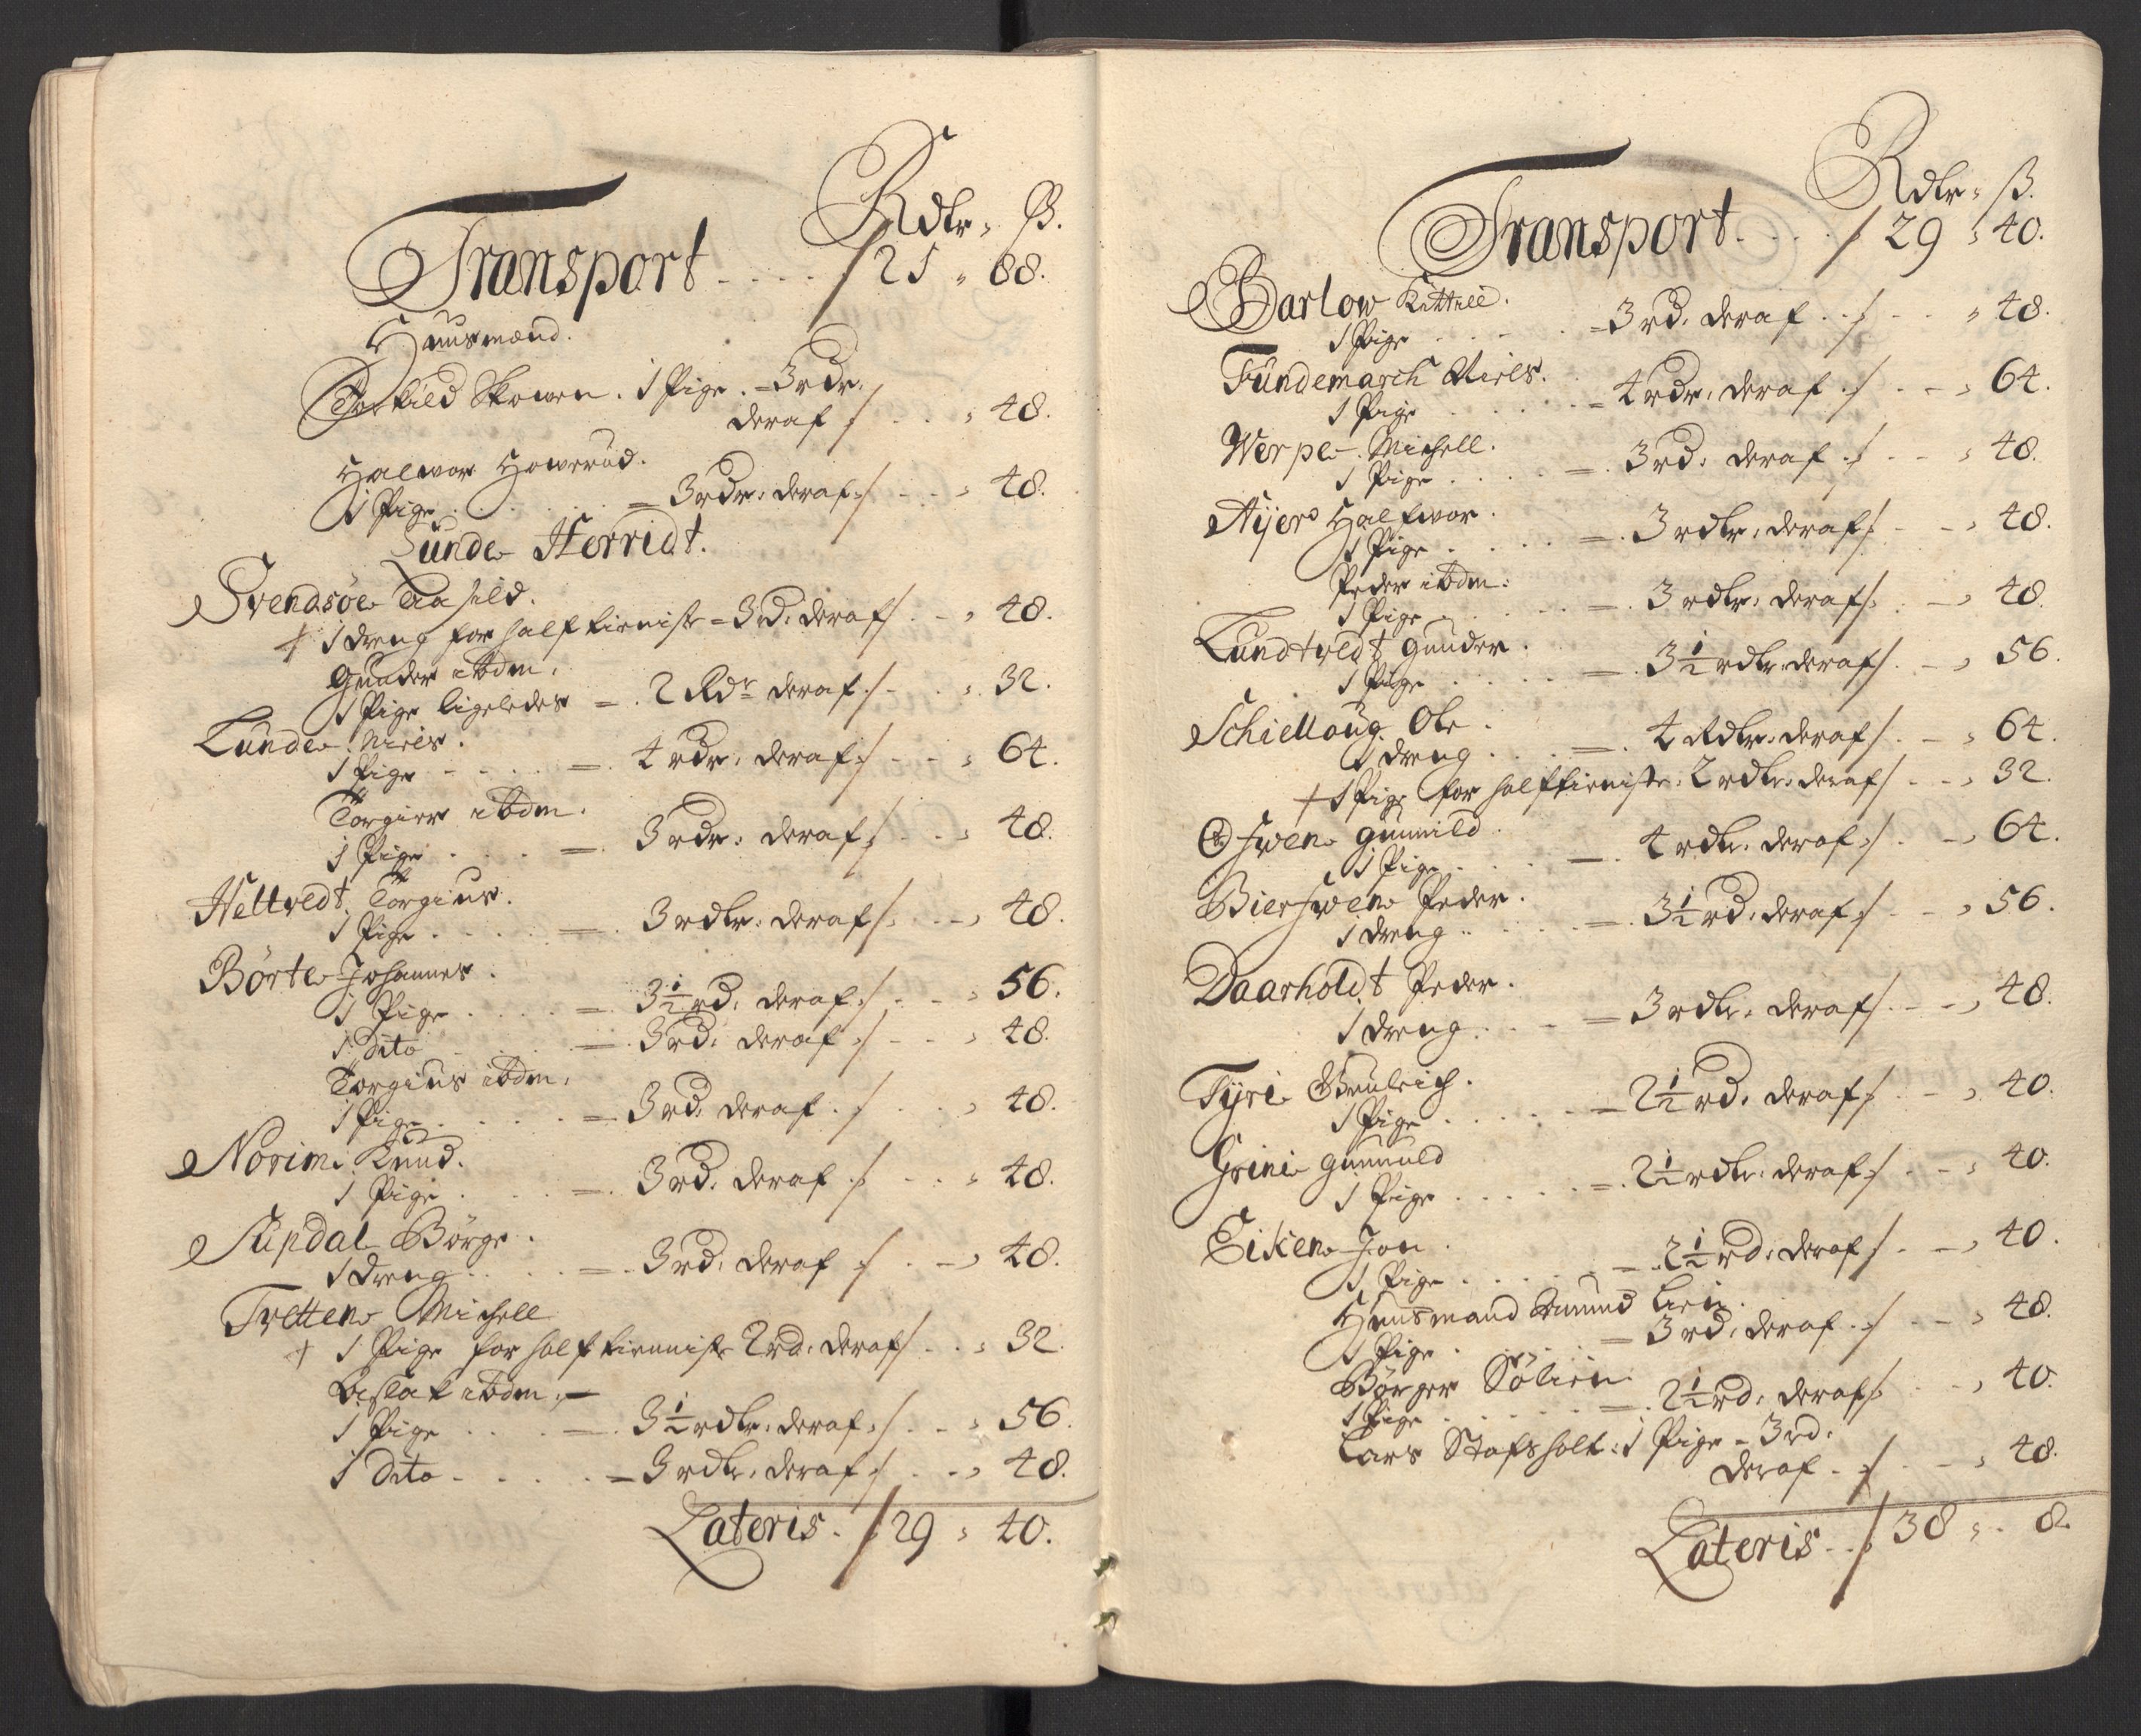 Rdlr, ß.
Transport - - - / 21 , 88.
Huusmænd.
Torkild Skowen. 1 Pige. = 3 rdr.
deraf / . . , 48.
Halwor Howerud.
1 Pige . . . . = 3 rdr. deraf / - - , 48.
Lunde Herridt.
Svendsøe Aasild.
+ 1 dreng for half tienist = 3 rd. deraf / . - , 48.
Gunder ibdm.
1 Pige ligeledes = . 2 Rdr deraf / - . , 32.
Lunde Niels.
1 Pige - - - . = . 4 rdr. deraf / - - , 64.
Torgier ibdm.
1 Pige . . . = . 3 rdr. deraf / - - , 48.
Heltvedt Torgius.
1 Pige . . . . = . 3 rdlr. deraf / . . - , 48.
Børte Johannes.
1 Pige . . . . = . 3 1/2 rd. deraf / - - , 56.
1 dito . . . . = . 3 rd. deraf / - - , 48.
Torgius ibdm.
1 Pige . . . . = 3 rd. deraf . / . . , 48.
Norime Knud.
1 Pige . . . = . 3 rd. deraf . / . . , 48.
Supdal Børge.
1 dreng . . . = . 3 rd. deraf / . - , 48.
Tvetten Michell
+ 1 Pige for half tiennist 2 rd. deraf / . . , 32.
Aslak ibdm. -
1 Pige . . . = . 3 1/2 rdlr. deraf / . - , 56.
1 dito - . . . = 3 rdlr. deraf / . . , 48.
Lateris. / 29 , 40.
Rdlr, ß.
Transport. . . . / 29 , 40.
Barlow Kittell.
1 Pige . . . . = 3 rd. deraf . . / - . , 48.
Fundemarch Niels.
1 Pige . . . . = 4 rdr. deraf / . - , 64.
Werpe Michell.
1 Pige . . . . = . 3 rd. deraf / . - , 48.
Aÿero Halfwor.
1 Pige . . . . = . 3 rdlr. deraf / - - , 48.
Peder ibdm.
1 Pige . . . . = . 3 rdlr. deraf / . - , 48.
Lundtvedt Gunder.
1 Pige . . . . = . 3 1/2 rdlr. deraf / . - , 56.
Schiellaug Ole.
1 dreng . . . = . 4 Rdlr. deraf / . - , 64.
+ 1 Pige for half tieniste. 2 rdlr. deraf / . - , 32.
Øfwen Gunnild.
1 Pige . . . . = . 4 rdlr. deraf / . - , 64.
Bierfwen Peder.
1 dreng . . . . = . 3 1/2 rd. deraf / - - , 56.
Daarholdt Peder.
1 dreng . . . = 3 rdlr. deraf / . - - , 48.
Tÿri Brulich.
1 Pige . . . . = 2 1/2 rd. deraf / . - , 40.
Grini Gunnuld
1 Pige . . . . = . 2 1/2 rdlr. deraf / . - , 40.
Eiken Jon.
1 Pige . . . . = . 2 1/2 rd. deraf / . - , 40.
Huusmand Amund Lien.
1 Pige . . . . = 3 rd. deraf . / . - , 48.
Børger Sølien.
1 Pige . . . . = . 2 1/2 rd. deraf / . . , 40.
Lars Stafsholt. 1 Pige = 3 rd.
deraf . / . - , 48.
Lateris . . / 38 , . 8.